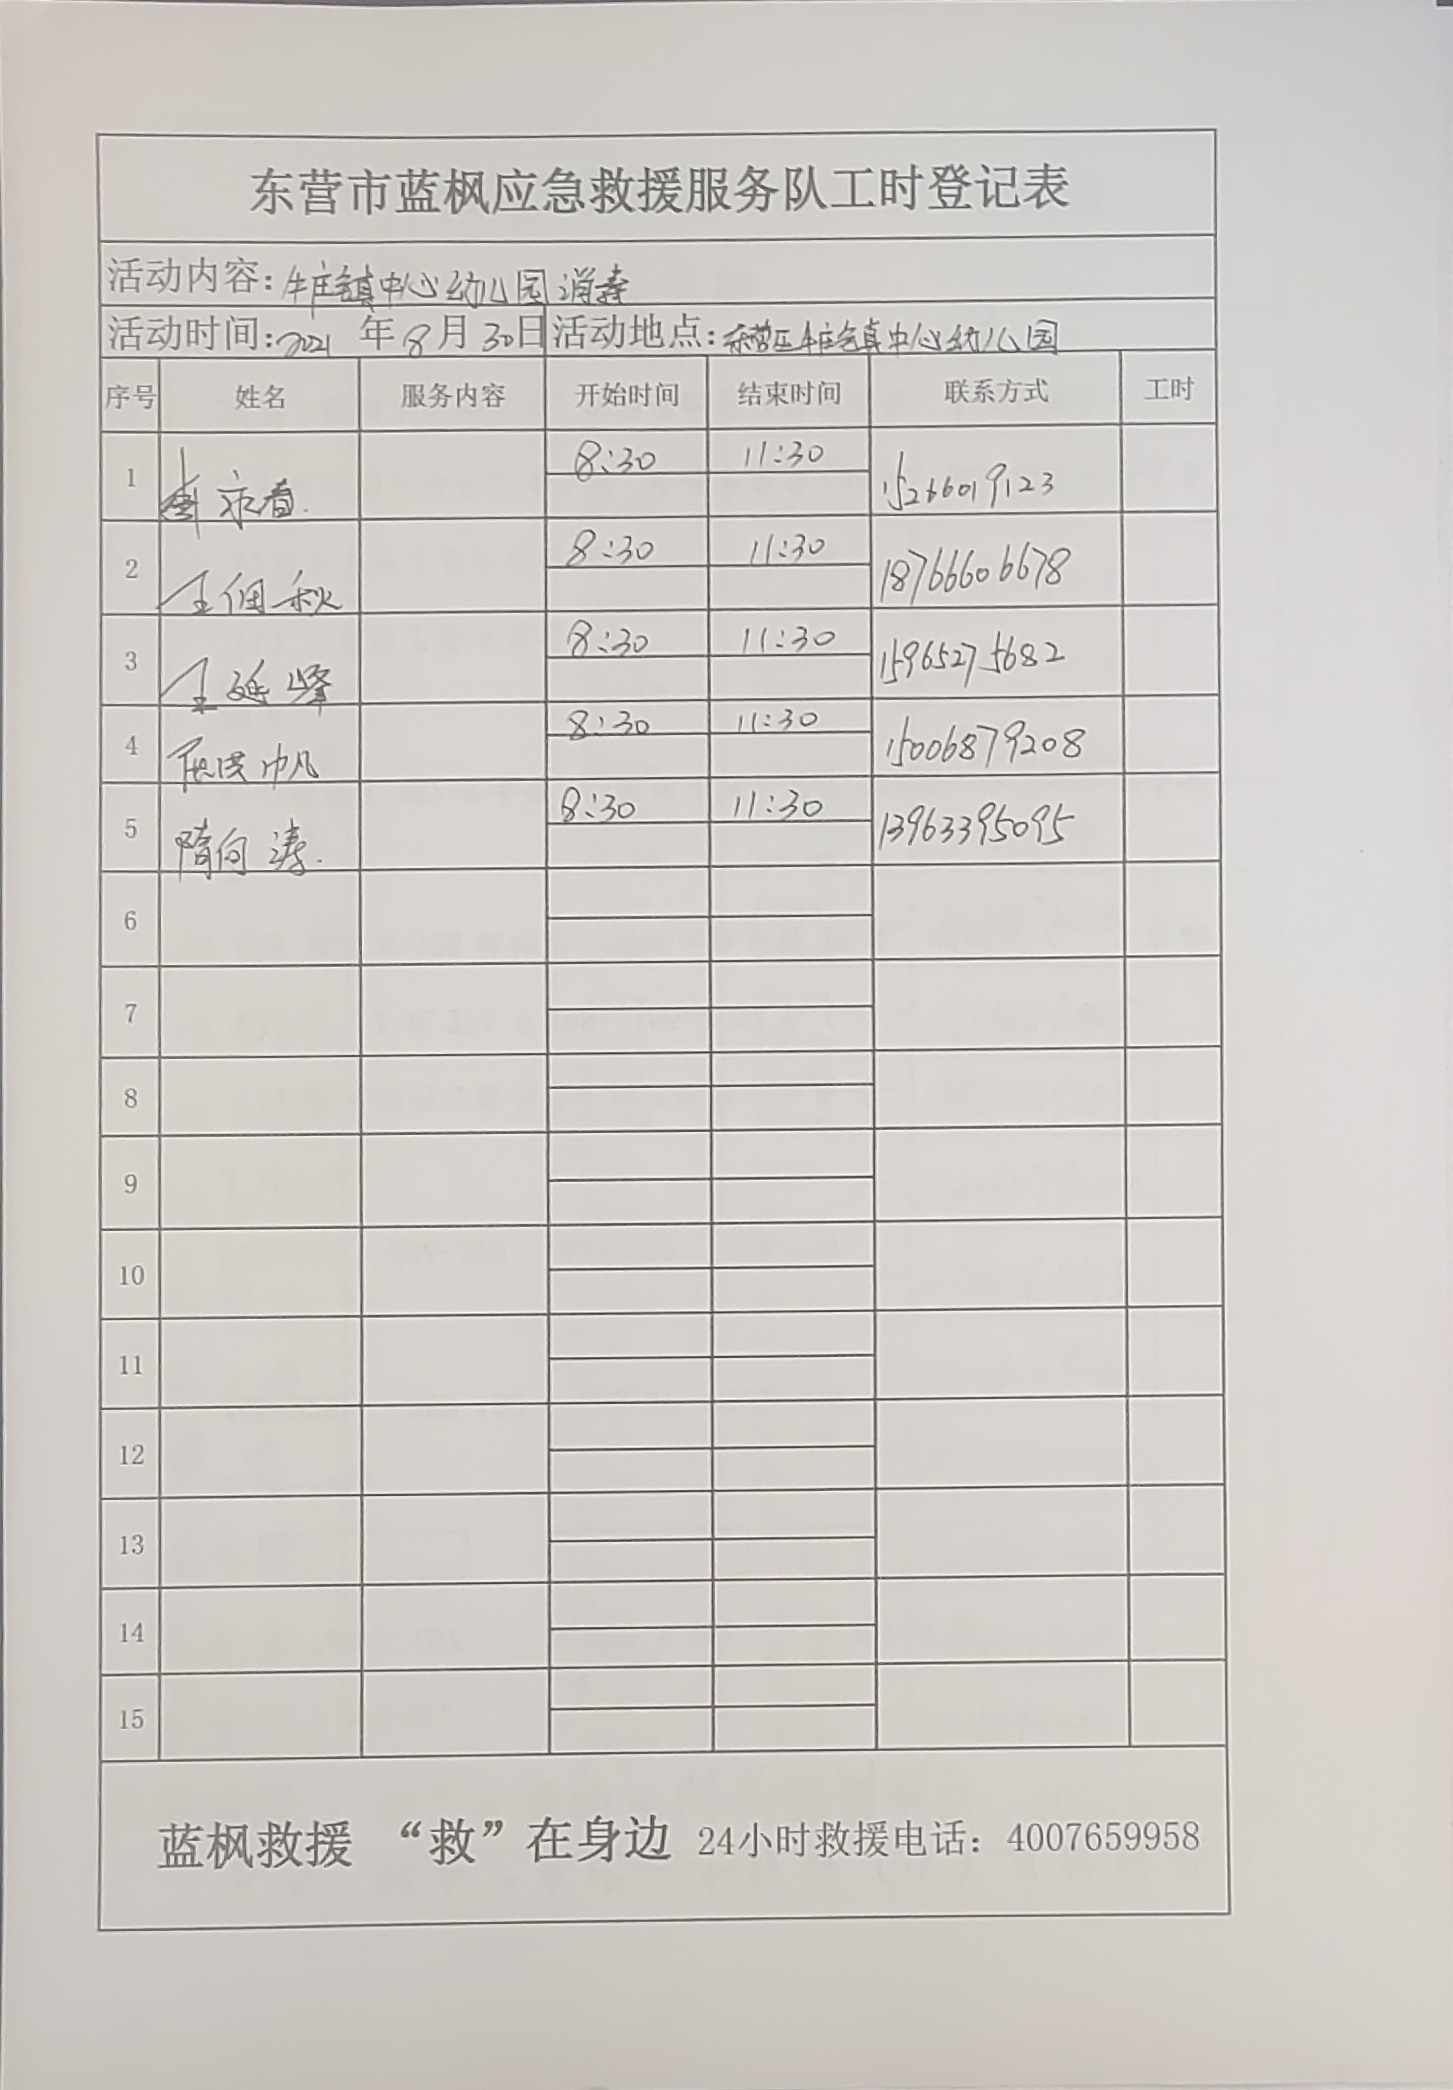 东营市蓝枫应急救援服务队工时登记表
活动内容：牛庄镇中心幼儿园消毒
活动时间：2021年8月30日 活动地点：东营区牛庄镇中心幼儿园
序号 姓名 服务内容 开始时间 结束时间 联系方式 工时
1 8:30 11:30 15266019123
2 王佃秋 8:30 11:30 18766606678
3 王延峰 8:30 11:30 15965275682
4 8:30 11:30 15006879208
5 隋向涛. 8:30 11:30 13963395095
6
7
8
9
10
11
12
13
14
15
蓝枫救援 “救”在身边 24小时救援电话：4007659958